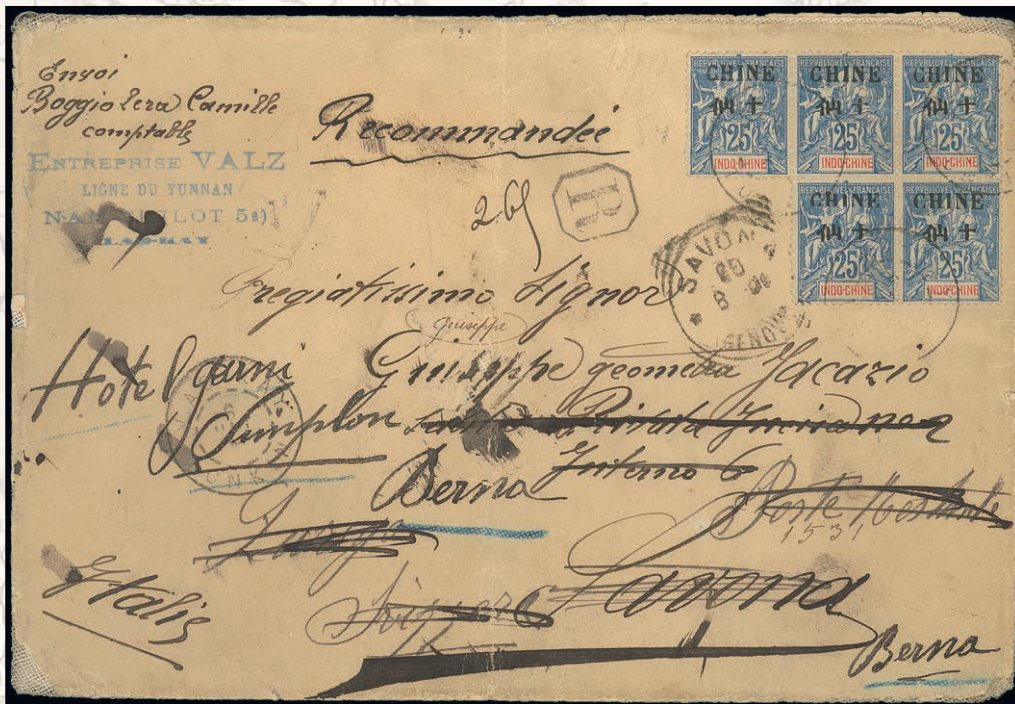 Envoi
Boggio Lera Camille
comptable
ENTREPRISE VALZ
LIGNE DU YUNNAN
(LOT 52)
LAO-KAY
Recommandée
R
265
REPUBLIQUE FRANÇAISE
CHINE
04
25
INDO-CHINE
REPUBLIQUE FRANÇAISE
CHINE
04
25
INDO-CHINE
REPUBLIQUE FRANÇAISE
CHINE
04
25
INDO-CHINE
REPUBLIQUE FRANÇAISE
CHINE
04
25
INDO-CHINE
REPUBLIQUE FRANÇAISE
CHINE
04
25
INDO-CHINE
SAVONA
25
8
(GENOVA)
Pregiatissimo Signor
Giuseppe
Giuseppe geometra Jacazio
Hotel garni
Simplon
Interno 6
Berna
Poste Restante
1531
Savona
Italie
Berna